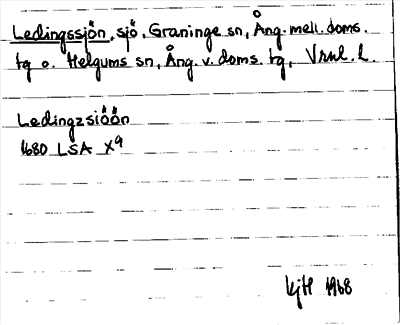 Ledingssjön, sjö, Graninge sn, Ång. mell. doms.
tg o. Helgums sn, Ång. v. doms. tg, Vrnl. l.
Ledingzsiöön
1680 LSA X9
KjH 1968